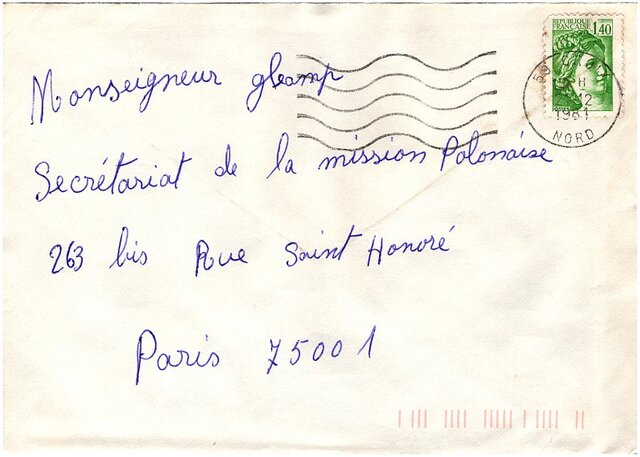 REPUBLIQUE
FRANÇAISE 1,40
H
12
1981
NORD
Monseigneur glemp
Secrétariat de la mission Polonaise
263 bis Rue Saint Honoré
Paris 75001